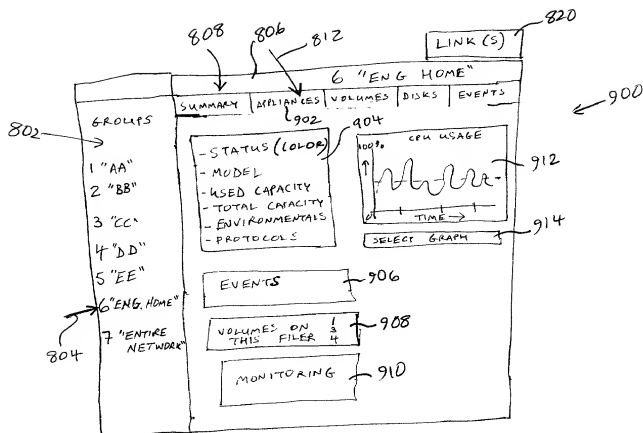 820
808
806
812
LINK(S)
6 "ENG HOME"
SUMMARY APPLIANCES VOLUMES DISKS EVENTS
900
802
GROUPS
902
904
1 "AA"
2 "BB"
3 "CC"
4 "DD"
5 "EE"
6 "ENG. HOME"
7 "ENTIRE
NETWORK"
804
- STATUS (COLOR)
- MODEL
- USED CAPACITY
- TOTAL CAPACITY
- ENVIRONMENTALS
- PROTOCOLS
CPU USAGE
100%
0
TIME
912
SELECT GRAPH
914
EVENTS
906
VOLUMES ON 1
THIS FILER 3
4
908
MONITORING
910